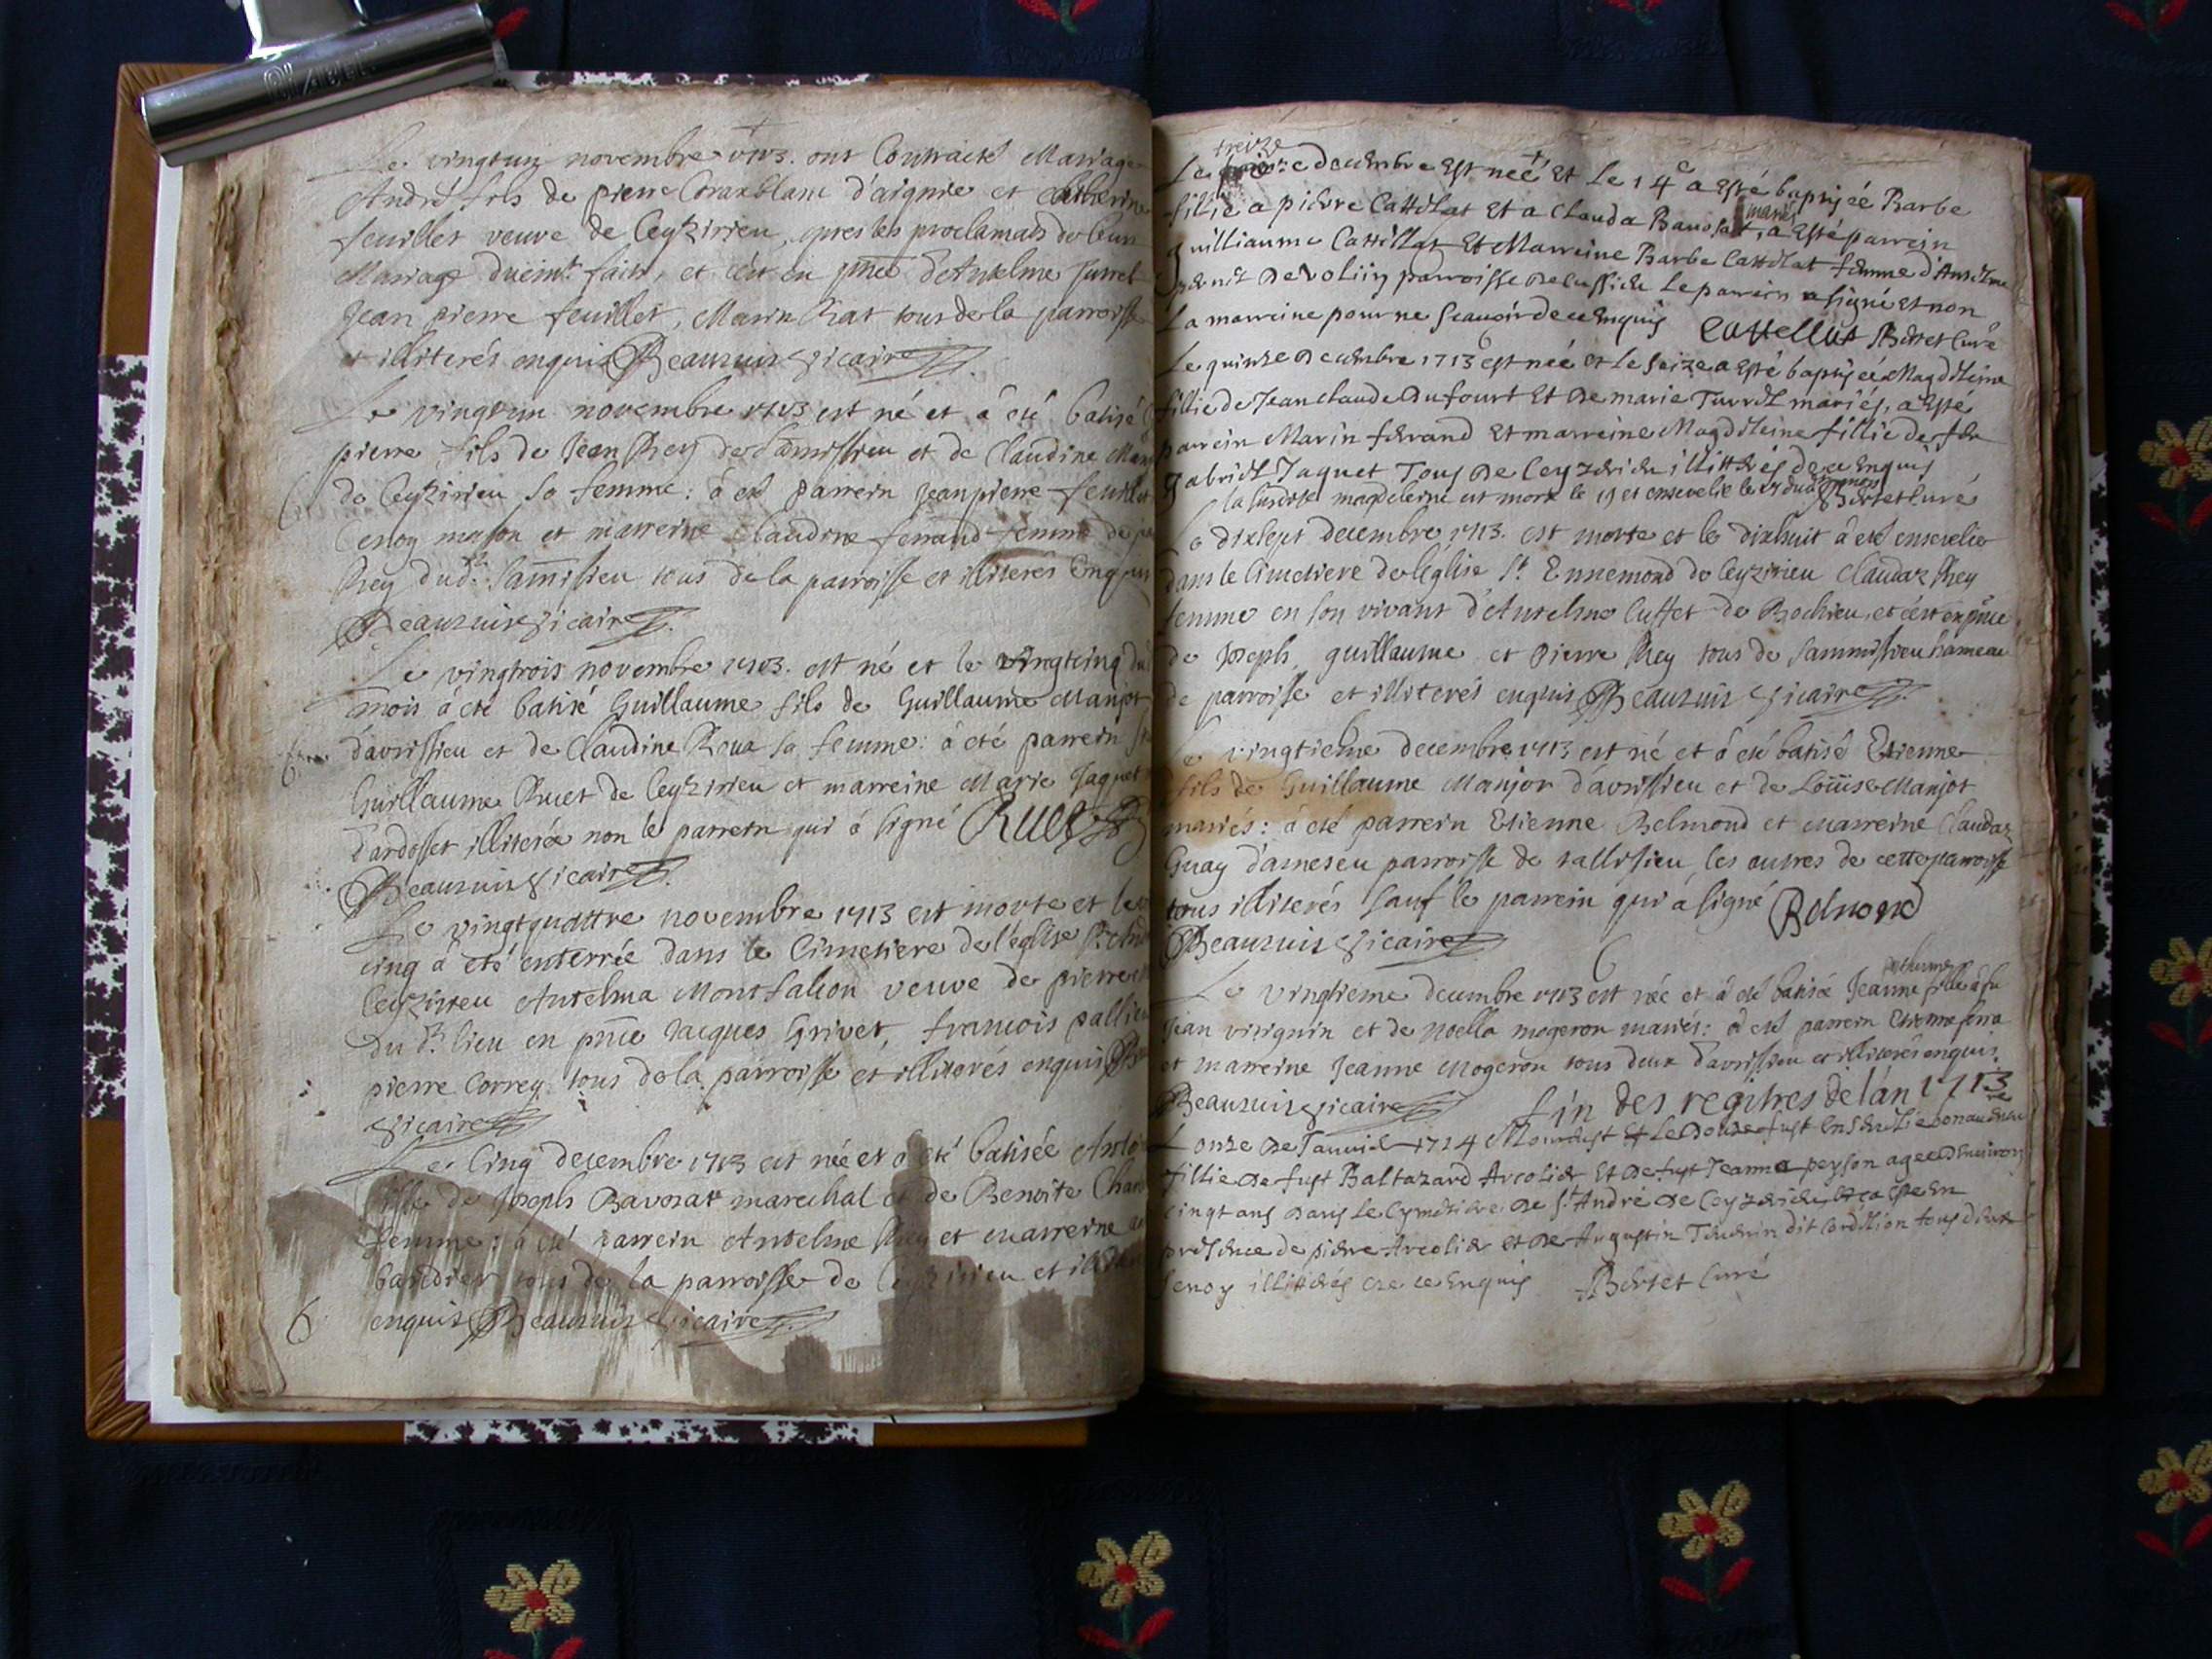 Le vingtun novembre 1713. ont Contracté Mariage
André fils de pierre Coraxblanc d'aignie et
feuillet veuve de Ceyzirieu, apres les proclamats de leur
Mariage duëmt. faits, et c'est en pnce d'Antelme Jurret
Jean pierre feuillet, Marin Rat tous de la parroisse
et illiterés enquis Beauzuis vicaire
Le vingtun novembre 1713 est né et à eté batisé
pierre fils de Jean Rey de Samissieu et de Claudine
de Ceyzirieu sa femme: à eté parrein Jeanpierre feuillet
mason et marreine Claudine ferrand femme de
Rey dud. Samissieu tous de la parroisse et illiterés Enquis
Beauzuis vicaire
Le vingtrois novembre 1713. est né et le vingtcinq du
mois à eté batisé Guillaume fils de Guillaume Manjot
d'avrissieu et de Claudine Roux sa femme: à eté parrein
Guillaume Ruet de Ceyzirieu et marreine Marie Jaquet
d'ardosset illiterée non le parrein qui à signé Ruet
Beauzuis vicaire
Le vingtquattre novembre 1713 est morte et le
cinq à eté enterrée dans le Cimetiere de l'eglise St.
Ceyzirieu Antelma Montfalcon veuve de pierre
du dt. lieu en pnce Jacques Grivet, francois pallieu
pierre Correy tous de la parroisse et illiterés enquis
vicaire
Le Cinq decembre 1713 est née et à eté batisée
fille de Joseph Bavozat marechal et de Benoite
femme: à eté parrein Antelme Rey et marreine
tous de la parroisse de Ceyzirieu et
6 enquis Beauzuis vicaire
treize
Le decembre Est neé Et Le 14e a Esté baptiséé Barbe
fillie a pierre Cattillat Et a Clauda Bavosat, mariés a Esté parrein
guilliaume Cattillat Et Marreine Barbe Cattilat femme d'Antelme
De Voliin parroisse De Cussieu Le parrein a signé et non
La marreine pour ne scauoir de ce Enquis Cattellat Bertet Curé
Le quinze Decembre 1713 est née et le seize a Esté baptiséé Magdeleine
fillie de Jean claude Dufourt Et De marie Turrel mariés, a Esté
parrein Marin ferrand Et marreine Magdeleine fillie de feu
gabriel Jaquet Tous De Ceyzerieu illitterés de ce Enquis
la susdite magdeleine est morte le 19 et ensevelie le Bertet Curé
Le dixsept decembre 1713. est morte et le dixhuit à eté ensevelie
dans le Cimetiere de l'eglise St. Ennemond de Ceyzirieu Claudaz Rey
femme en son vivant d'Antelme Cusset de Rochieu, et c'est en pnce
de Joseph, guillaume et Pierre Rey tous de Sammissieu hameau
de parroisse et illiterés enquis Beauzuis vicaire
Le vingtieme decembre 1713 est né et à eté batisé Etienne
fils de Guillaume Manjot d'avrissieu et de Loüise Manjot
mariés: à eté parrein Etienne Belmond et marreine Claudaz
Guay d'ameseu parroisse de tallissieu, les autres de cette parroisse
tous illiterés sauf le parrein qui à signé Belmond
Beauzuis vicaire
Le vingtieme decembre 1713 est née et à eté batisée Jeanne posthume fille à fu
Jean virignin et de Noella mogeron mariés: à eté parrein Etienne
et marreine Jeanne Mogeron tous deux d'avrissieu et illiterés enquis
Beauzuis vicaire fin des regitres de l'an 1713
L onze De Januié 1714 Mourust Et Le Douze fust Enseuelie
fillie De fust Baltazard Arcolier Et De fust Jeanne peyson agee d'Enuiron
cinqt ans Dans Le Cymetiere De St. André De Ceyzerieu Et ce En
presence de pierre Arcolier et De Augustin dit Cordilion tous deux
illitterés De ce Enquis Bertet Curé